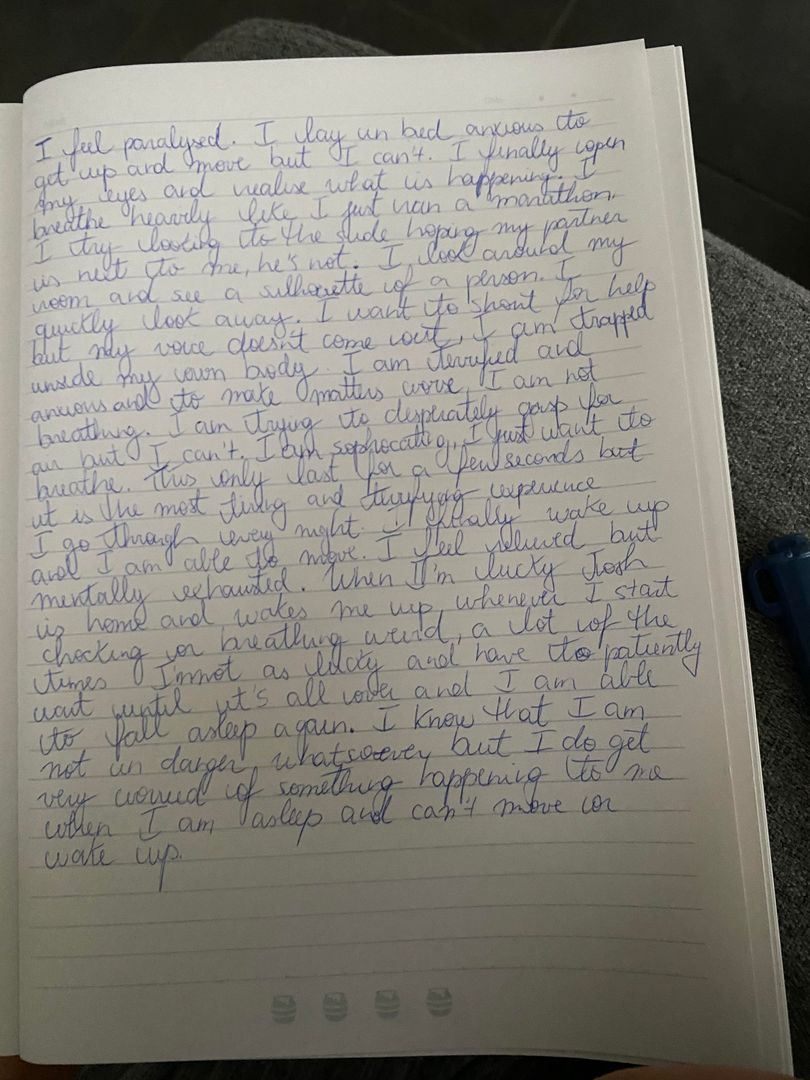 I feel paralysed. I lay in bed anxious to
get up and move but I can't. I finally open
my eyes and realise what is happening. I
breathe heavily like I just ran a marathon.
I try looking to the side hoping my partner
is next to me, he's not. I look around my
room and see a silhouette of a person. I
quickly look away. I want to shout for help
but my voice doesn't come out, I am trapped
inside my own body. I am terrified and
anxious and to make matters worse, I am not
breathing. I am trying to desperately gasp for
air but I can't. I am sophocating, I just want to
breathe. This only last for a few seconds but
it is the most tiring and terrifying experience
I go through every night. I finally wake up
and I am able to move. I feel relieved but
mentally exhausted. When I'm lucky Josh
is home and wakes me up, whenever I start
chocking or breathing weird, a lot of the
times I'm not as lucky and have to patiently
wait until it's all over and I am able
to fall asleep again. I know that I am
not in danger whatsoever, but I do get
very worried of something happening to me
when I am asleep and can't move or
wake up.